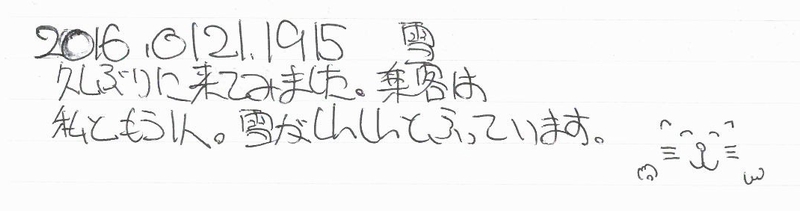 2016.0121.1915 雪
久しぶりに来てみました。乗客は
私ともう1人。雪がしんしんとふっています。